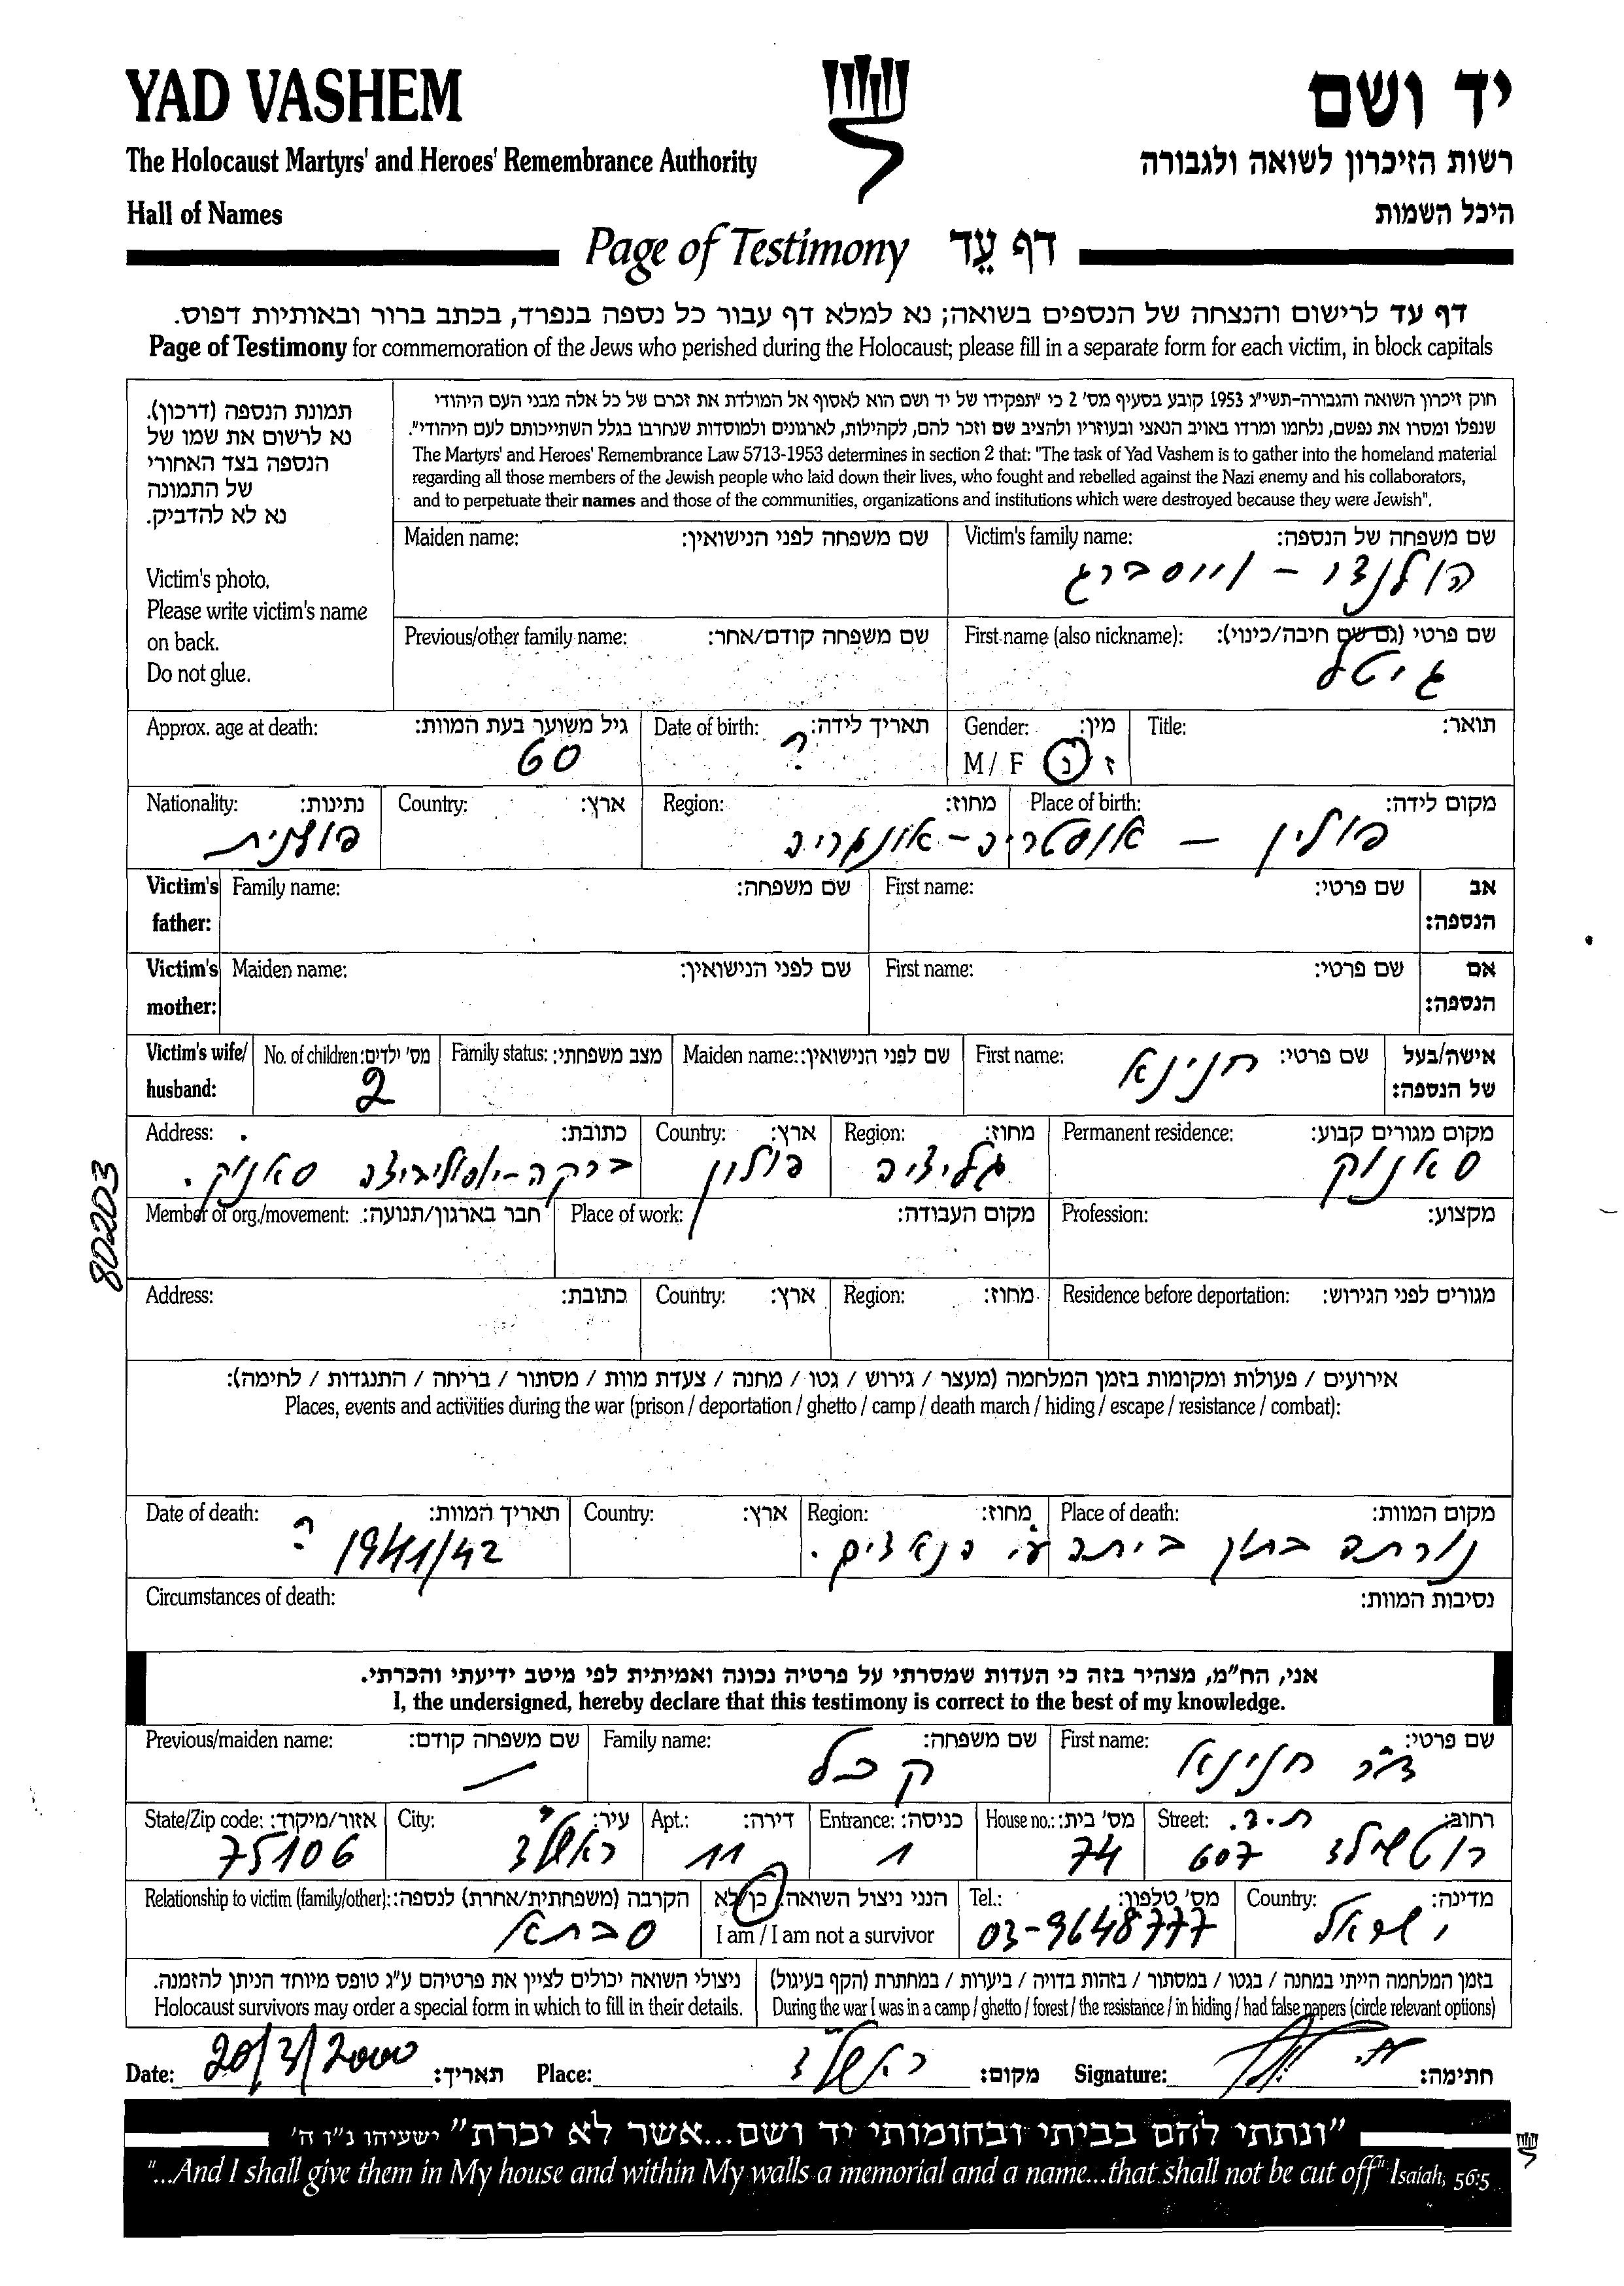 YAD VASHEM
יד ושם
The Holocaust Martyrs' and Heroes' Remembrance Authority
רשות הזיכרון לשואה ולגבורה
Hall of Names
היכל השמות
Page of Testimony דף עֵד
דף עד לרישום והנצחה של הנספים בשואה; נא למלא דף עבור כל נספה בנפרד, בכתב ברור ובאותיות דפוס.
Page of Testimony for commemoration of the Jews who perished during the Holocaust; please fill in a separate form for each victim, in block capitals
תמונת הנספה (דרכון).
נא לרשום את שמו של
הנספה בצד האחורי
של התמונה
נא לא להדביק.
Victim's photo.
Please write victim's name
on back.
Do not glue.
חוק זיכרון השואה והגבורה-תשי"ג 1953 קובע בסעיף מס' 2 כי "תפקידו של יד ושם הוא לאסוף אל המולדת את זכרם של כל אלה מבני העם היהודי
שנפלו ומסרו את נפשם, נלחמו ומרדו באויב הנאצי ובעוזריו ולהציב שם וזכר להם, לקהילות, לארגונים ולמוסדות שנחרבו בגלל השתייכותם לעם היהודי".
The Martyrs' and Heroes' Remembrance Law 5713-1953 determines in section 2 that: "The task of Yad Vashem is to gather into the homeland material
regarding all those members of the Jewish people who laid down their lives, who fought and rebelled against the Nazi enemy and his collaborators,
and to perpetuate their names and those of the communities, organizations and institutions which were destroyed because they were Jewish".
Maiden name: שם משפחה לפני הנישואין:
Victim's family name: שם משפחה של הנספה:
הולנדר - וייסברג
Previous/other family name: שם משפחה קודם/אחר:
First name (also nickname): שם פרטי (גם שם חיבה/כינוי):
גיטל
Approx. age at death: גיל משוער בעת המוות:
60
Date of birth: תאריך לידה:
?
Gender: מין:
M / F ז / נ
Title: תואר:
Nationality: נתינות:
פולנית
Country: ארץ:
Region: מחוז:
Place of birth: מקום לידה:
פולין - אוסטריה-אונגריה
Victim's father: Family name: שם משפחה:
First name: שם פרטי: אב הנספה:
Victim's mother: Maiden name: שם לפני הנישואין:
First name: שם פרטי: אם הנספה:
Victim's wife/ husband:
No. of children: מס' ילדים:
2
Family status: מצב משפחתי:
Maiden name: שם לפני הנישואין:
First name: שם פרטי: חנינא
אישה/בעל של הנספה:
Address: כתובת:
סאנוק.
Country: ארץ:
פולין
Region: מחוז:
גליציה
Permanent residence: מקום מגורים קבוע:
סאנוק
Member of org./movement: חבר בארגון/תנועה:
Place of work: מקום העבודה:
Profession: מקצוע:
Address: כתובת:
Country: ארץ:
Region: מחוז:
Residence before deportation: מגורים לפני הגירוש:
אירועים / פעולות ומקומות בזמן המלחמה (מעצר / גירוש / גטו / מחנה / צעדת מוות / מסתור / בריחה / התנגדות / לחימה):
Places, events and activities during the war (prison / deportation / ghetto / camp / death march / hiding / escape / resistance / combat):
Date of death: תאריך המוות:
1941/42 ?
Country: ארץ:
Region: מחוז:
Place of death: מקום המוות:
נורתה בתוך ביתה ע"י הנאצים.
Circumstances of death: נסיבות המוות:
אני, הח"מ, מצהיר בזה כי העדות שמסרתי על פרטיה נכונה ואמיתית לפי מיטב ידיעתי והכרתי.
I, the undersigned, hereby declare that this testimony is correct to the best of my knowledge.
Previous/maiden name: שם משפחה קודם:
Family name: שם משפחה:
קבל
First name: שם פרטי:
ד"ר חנינא
State/Zip code: אזור/מיקוד:
75106
City: עיר:
ראשל"צ
Apt.: דירה:
11
Entrance: כניסה:
1
House no.: מס' בית:
74
Street: רחוב:
ת.ד.
רוטשילד 607
Relationship to victim (family/other): הקרבה (משפחתית/אחרת) לנספה:
סבתא
הנני ניצול השואה: כן/לא
I am / I am not a survivor
Tel.: מס' טלפון:
03-9648777
Country: מדינה:
ישראל
ניצולי השואה יכולים לציין את פרטיהם ע"ג טופס מיוחד הניתן להזמנה.
Holocaust survivors may order a special form in which to fill in their details.
בזמן המלחמה הייתי במחנה / בגטו / במסתור / בזהות בדויה / ביערות / במחתרת (הקף בעיגול)
During the war I was in a camp / ghetto / forest / the resistance / in hiding / had false papers (circle relevant options)
Date: 20/3/2000 תאריך: Place: ראשל"צ מקום: Signature: חתימה:
"ונתתי להם בביתי ובחומותי יד ושם...אשר לא יכרת" ישעיהו נ"ו ה'
"...And I shall give them in My house and within My walls a memorial and a name...that shall not be cut off" Isaiah, 56:5
80203